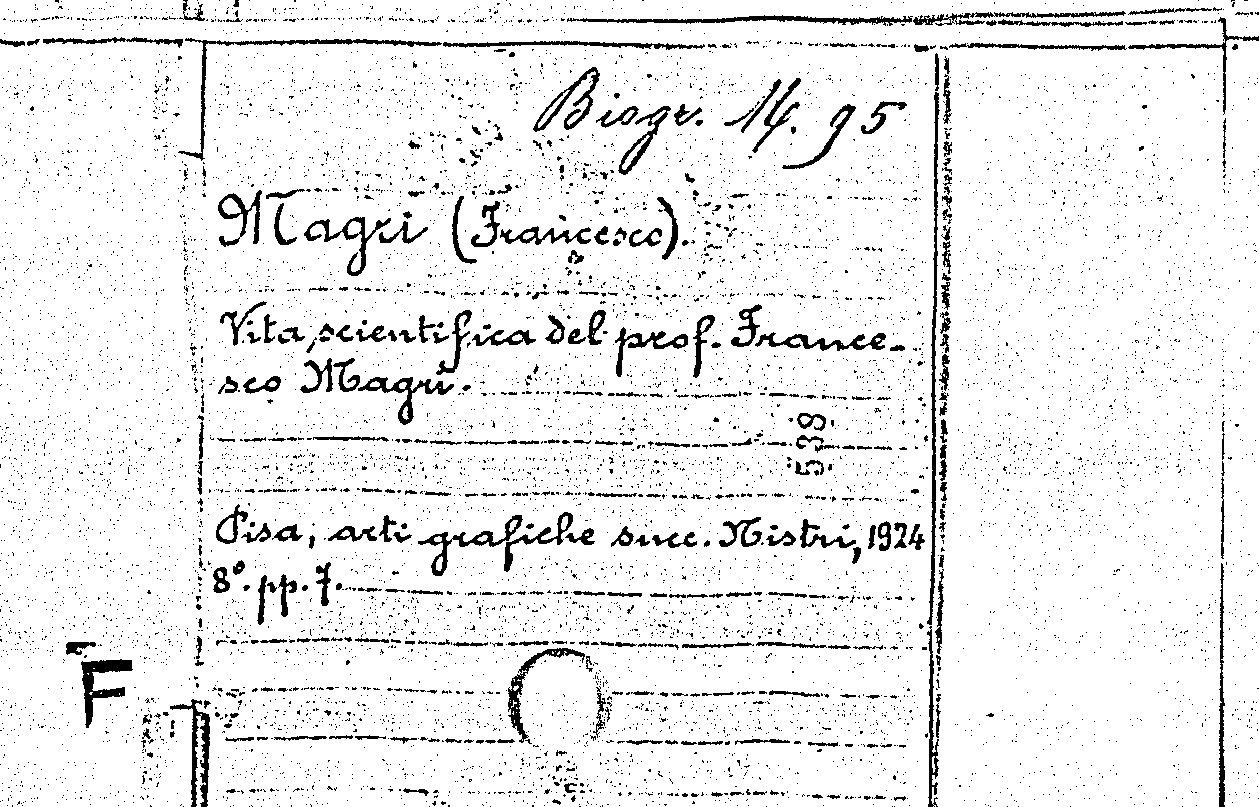 Biogr. M. 95
Magri (Francesco).
Vita scientifica del prof. France-
sco Magri.
538
Pisa, arti grafiche succ. Nistri, 1924
8º. pp. 7.
F